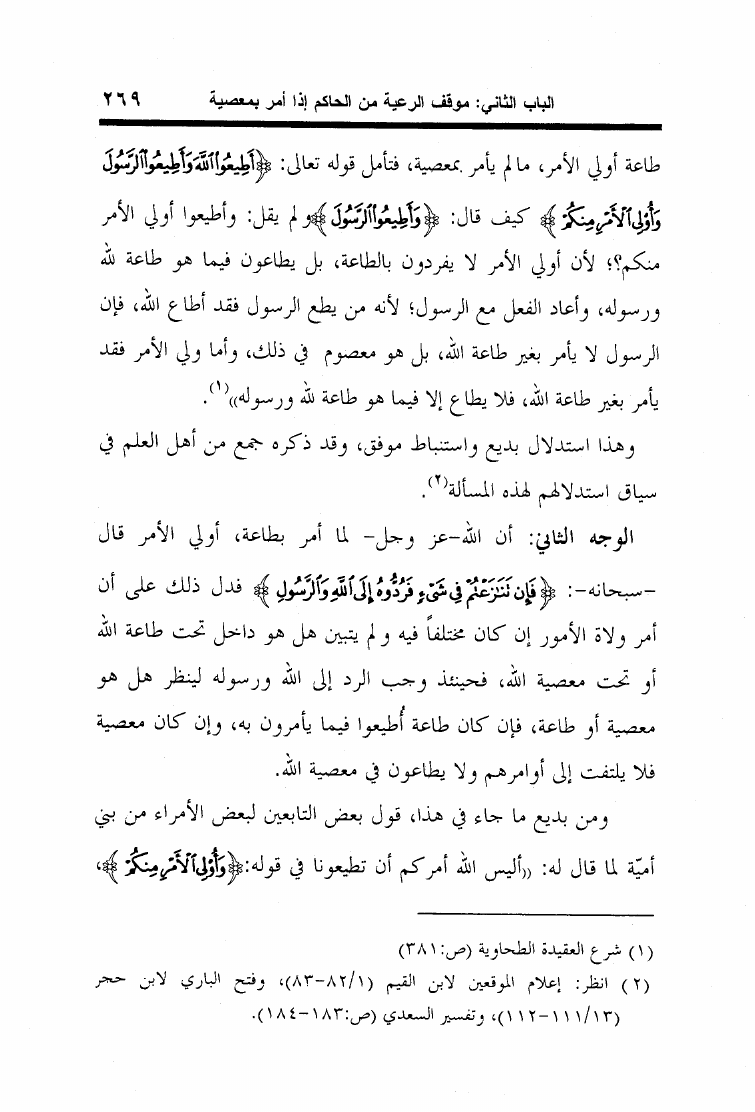 الباب الثاني: موقف الرعية من الحاكم إذا أمر بمعصية ٢٦٩
طاعة أولي الأمر، مالم يأمر بمعصية، فتأمل قوله تعالى: ﴿أَطِيعُوا اللَّهَ وَأَطِيعُوا الرَّسُولَ
وَأُوْلِي الْأَمْرِ مِنكُمْ﴾ كيف قال: ﴿وَأَطِيعُوا الرَّسُولَ﴾ و لم يقل: وأطيعوا أولي الأمر
منكم؟؛ لأن أولي الأمر لا يفردون بالطاعة، بل يطاعون فيما هو طاعة لله
ورسوله، وأعاد الفعل مع الرسول؛ لأنه من يطع الرسول فقد أطاع الله، فإن
الرسول لا يأمر بغير طاعة الله، بل هو معصوم في ذلك، وأما ولي الأمر فقد
يأمر بغير طاعة الله، فلا يطاع إلا فيما هو طاعة لله ورسوله))(١).
وهذا استدلال بديع واستنباط موفق، وقد ذكره جمع من أهل العلم في
سياق استدلالهم لهذه المسألة(٢).
الوجه الثاني: أن الله-عز وجل- لما أمر بطاعة، أولي الأمر قال
-سبحانه-: ﴿فَإِن تَنَازَعْتُمْ فِي شَيْءٍ فَرُدُّوهُ إِلَى اللَّهِ وَالرَّسُولِ﴾ فدل ذلك على أن
أمر ولاة الأمور إن كان مختلفاً فيه و لم يتبين هل هو داخل تحت طاعة الله
أو تحت معصية الله، فحينئذ وجب الرد إلى الله ورسوله لينظر هل هو
معصية أو طاعة، فإن كان طاعة أُطيعوا فيما يأمرون به، وإن كان معصية
فلا يلتفت إلى أوامرهم ولا يطاعون في معصية الله.
ومن بديع ما جاء في هذا، قول بعض التابعين لبعض الأمراء من بني
أميّة لما قال له: ((أليس الله أمركم أن تطيعونا في قوله:﴿وَأُوْلِي الْأَمْرِ مِنكُمْ﴾،
(١) شرع العقيدة الطحاوية (ص:٣٨١)
(٢) انظر: إعلام الموقعين لابن القيم (٨٢/١-٨٣)، وفتح الباري لابن حجر
(١١١/١٣-١١٢)، وتفسير السعدي (ص:١٨٣-١٨٤).